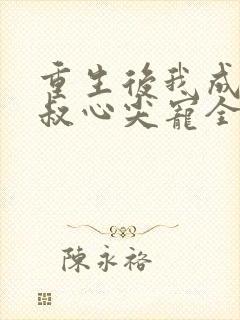 重生後我成
叔心尖寵全
陳永裕